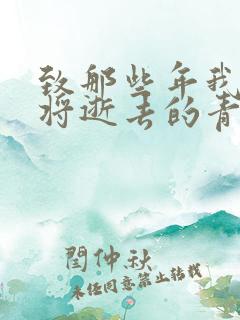 致那些年我
将逝去的青
闫仲秋
未经同意禁止转载